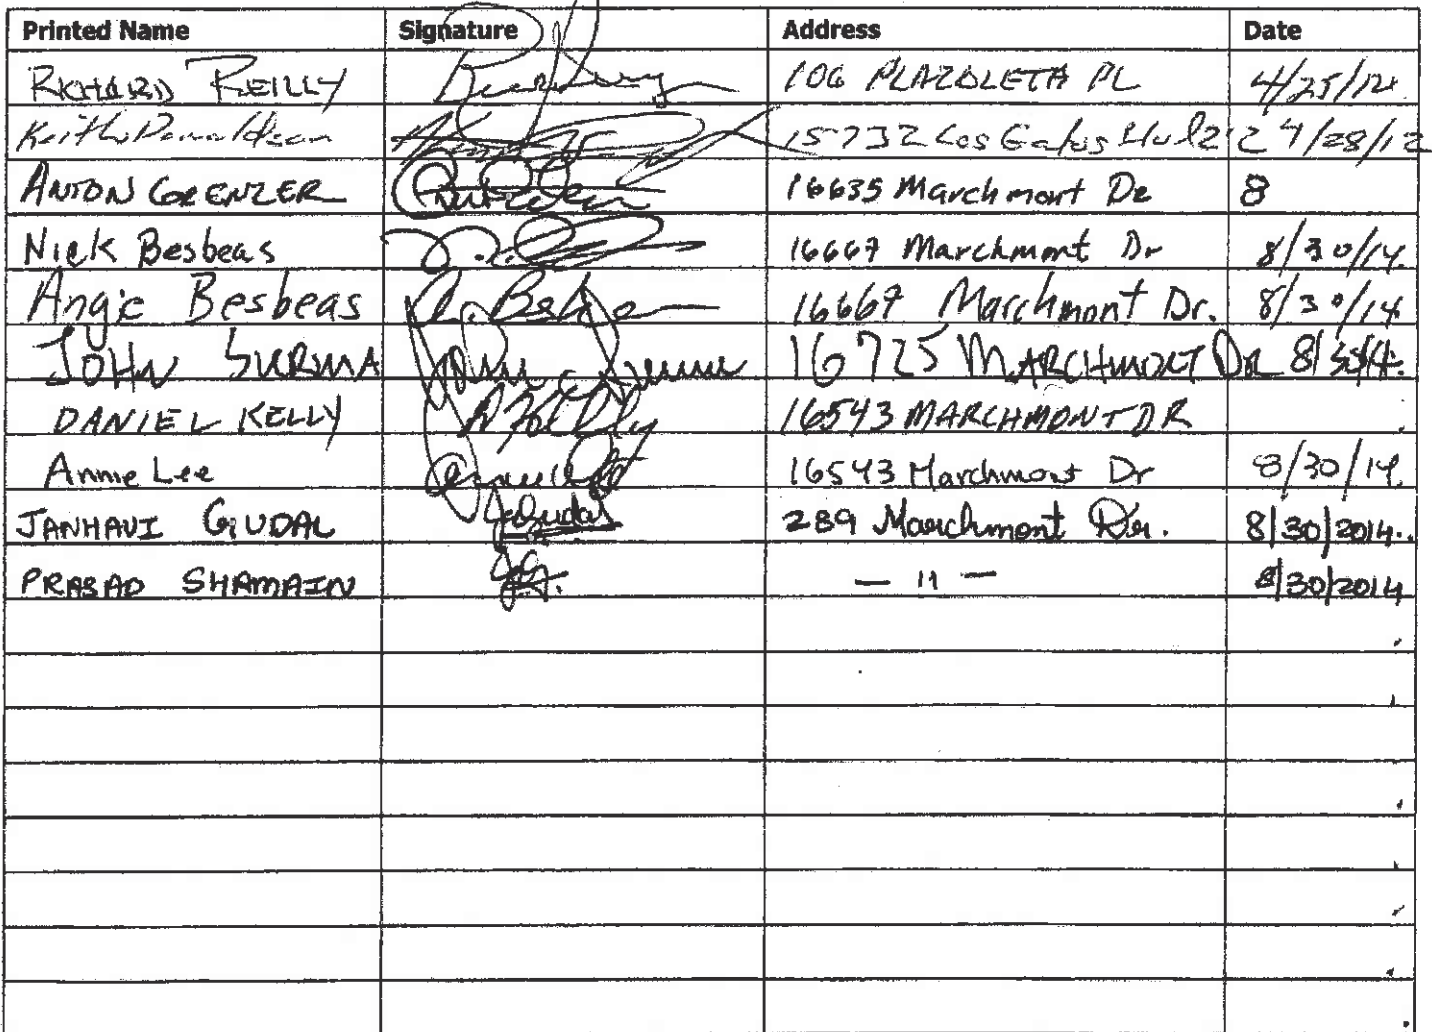 Printed Name Signature Address Date
RICHARD REILLY 106 PLAZOLETA PL 4/25/14
Keith Donaldson 15732 Los Gatos 4/28/12
ANTON GRENZER 16635 Marchmont Dr 8
Nick Besbeas 16667 Marchmont Dr 8/30/14
Angie Besbeas A. Bes 16667 Marchmont Dr. 8/30/14
JOHN SURMA John Surma 16725 MARCHMONT DR 8/30/14
DANIEL KELLY 16543 MARCHMONT DR
Annie Lee 16543 Marchmont Dr 8/30/14
JANHAVI GUDAL JGudal 289 Marchmont Dr. 8/30/2014
PRASAD SHAMAIN — 11 — 8/30/2014